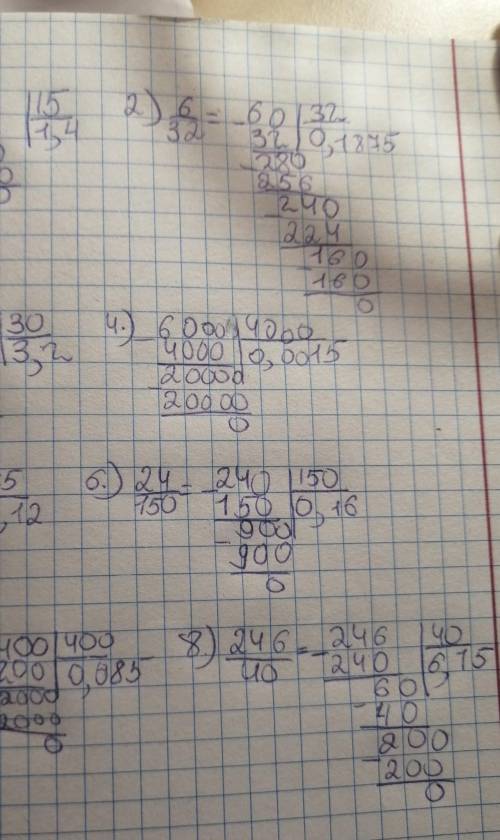 15
1,4
2) 6/32 = -60 | 32
32 | 0,1875
-280
256
-240
224
-160
160
0
30
3,2
4.) -6000 | 4000
4000 | 0,0015
-20000
20000
0
5
,12
6.) 24/150 = -240 | 150
150 | 0,16
-900
900
0
400 | 400
200 | 0,085
2000
2000
0
8.) 246/40 = -246 | 40
240 | 6,15
60
-40
200
-200
0